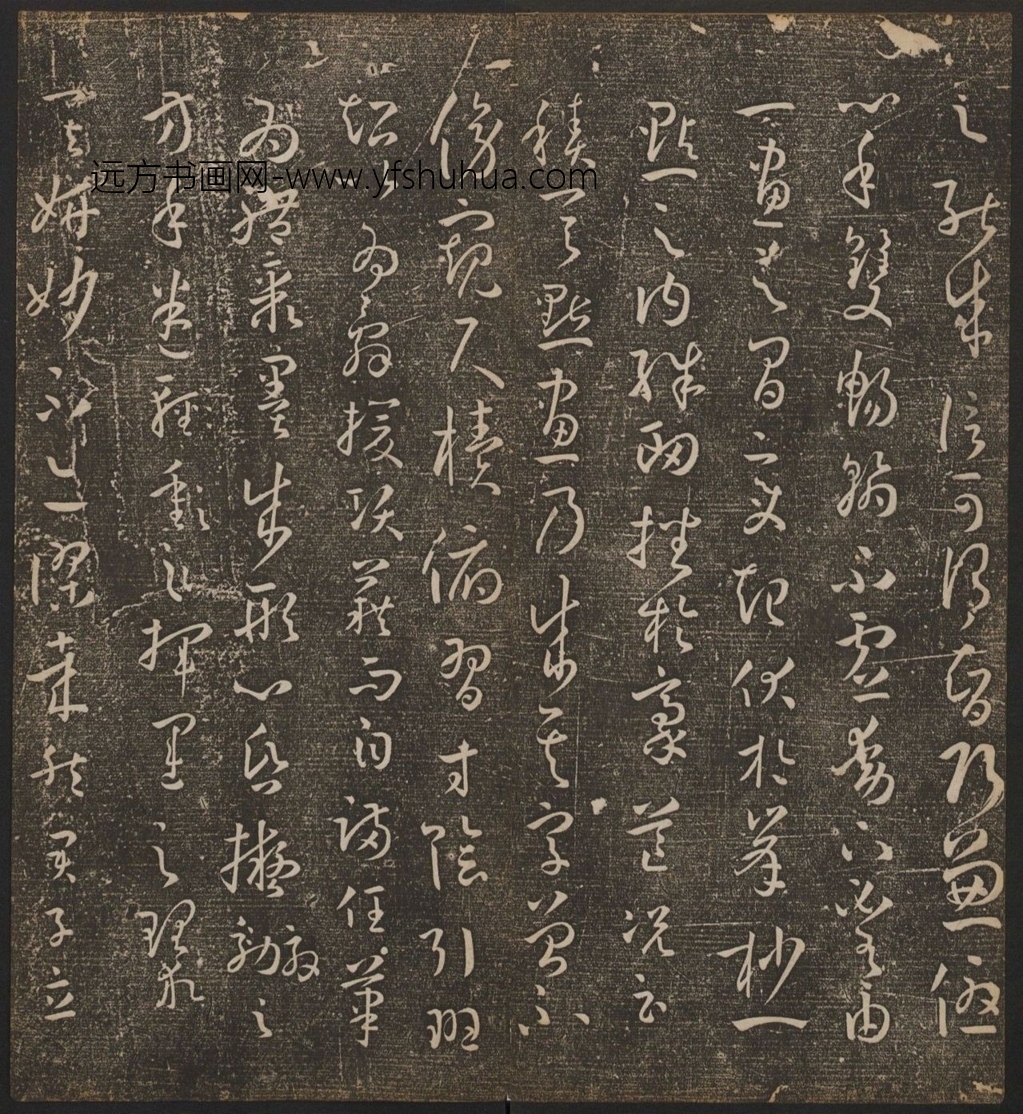 之能成信可謂智巧兼優
心手雙暢翰不虛動下必有由
一畫之間變起伏於峯杪一
點一之內殊衄挫於豪芒況云
積其點畫乃成其字曾不
傍窺尺櫝俯習寸陰引班
超以為辭援項籍而自滿任筆
為體聚墨成形心昏擬效之
方手迷揮運之理求
其妍妙不亦謬哉然君子立
远方书画网-www.yfshuhua.com